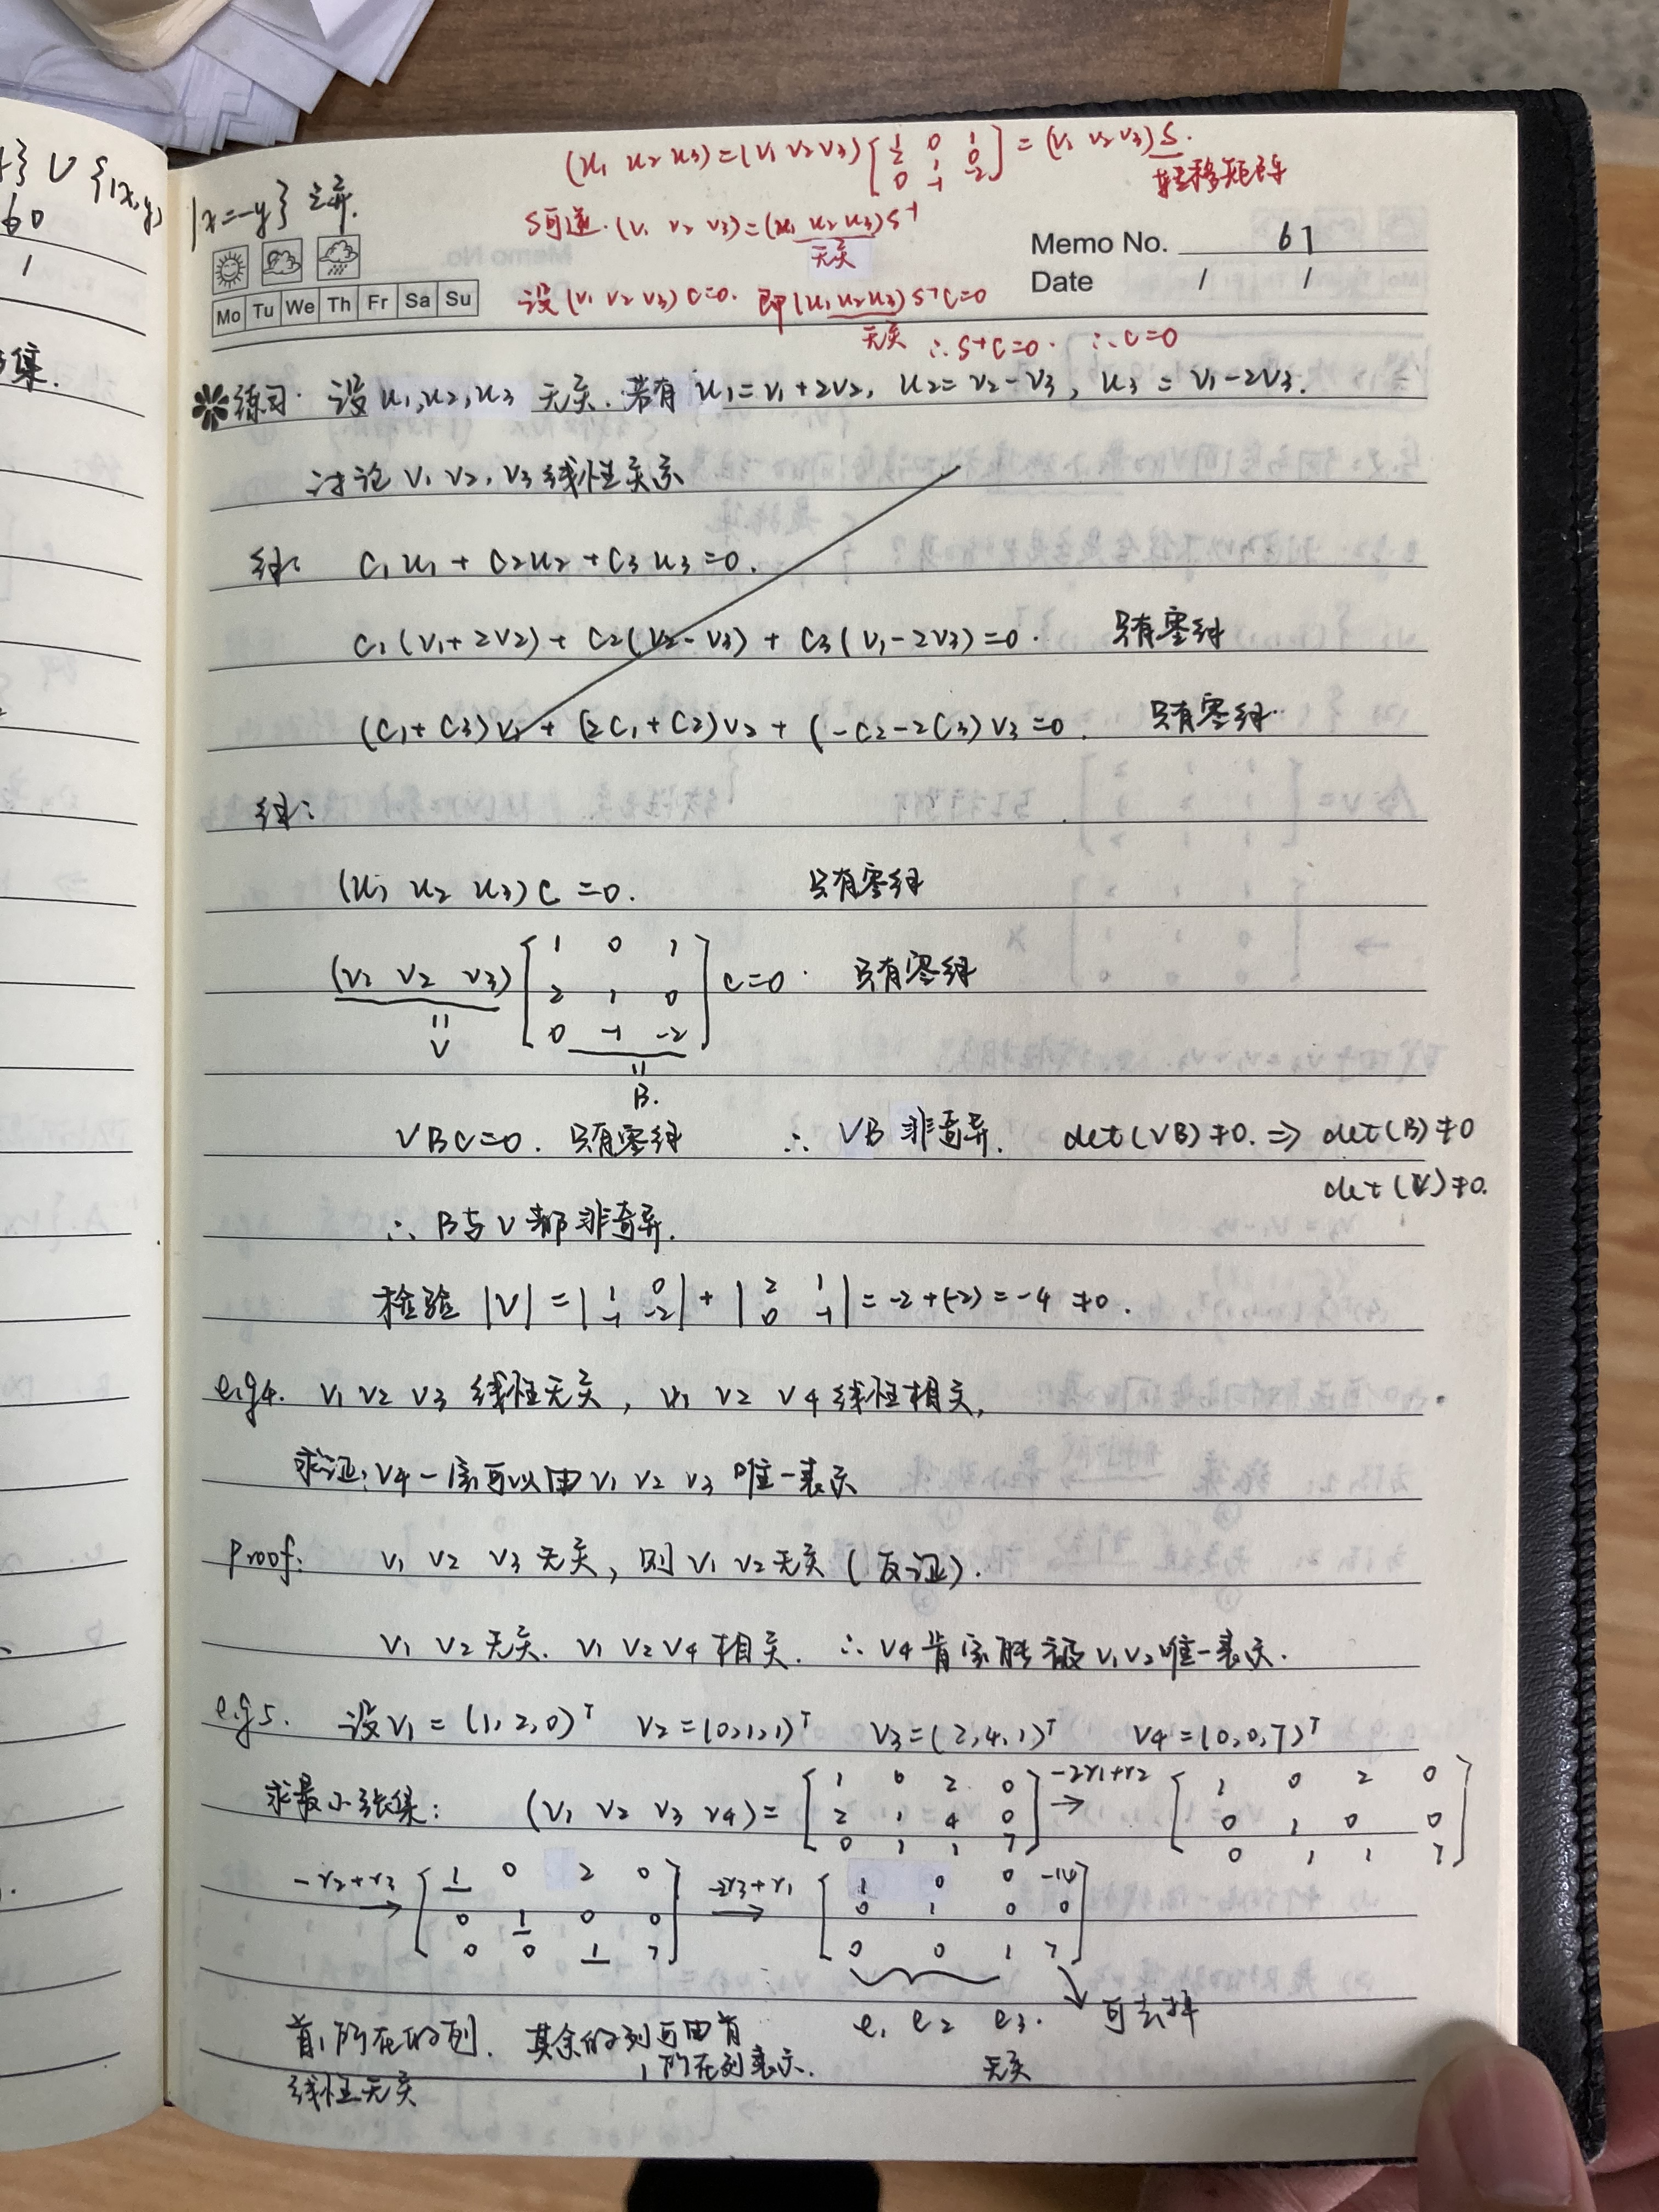 (u₁ u₂ u₃)=(v₁ v₂ v₃)[1 0 1; 2 1 0; 0 -1 -2]=(v₁ v₂ v₃)S.
转移矩阵
|x=-y} 之并.
S可逆.(v₁ v₂ v₃)=(u₁ u₂ u₃)S⁻¹
无关
Memo No. 61
Date / /
Mo Tu We Th Fr Sa Su
设(v₁ v₂ v₃)C=0. 即(u₁ u₂ u₃)S⁻¹C=0
无关 ∴S⁻¹C=0. ∴C=0
练习. 设u₁,u₂,u₃ 无关.若有u₁=v₁+2v₂, u₂=v₂-v₃, u₃=v₁-2v₃.
讨论 v₁ v₂, v₃线性关系
解: C₁u₁+C₂u₂+C₃u₃=0.
C₁(v₁+2v₂)+C₂(v₂-v₃)+C₃(v₁-2v₃)=0. 只有零解
(C₁+C₃)v₁+(2C₁+C₂)v₂+(-C₂-2C₃)v₃=0. 只有零解.
解:
(u₁ u₂ u₃)C=0. 只有零解
(v₁ v₂ v₃)[1 0 1; 2 1 0; 0 -1 -2]C=0. 只有零解
= V
= B.
VBC=0. 只有零解 ∴ VB 非奇异. det(VB)≠0. ⇒ det(B)≠0
det(V)≠0.
∴ B与V都非奇异.
检验 |V|=|1 0; -1 -2|+|2 1; 0 -1|=-2+(-2)=-4≠0.
e.g4. v₁ v₂ v₃ 线性无关, v₁ v₂ v₄线性相关,
求证:v₄一定可以由v₁ v₂ v₃ 唯一表示
Proof: v₁ v₂ v₃ 无关, 则v₁ v₂无关(反证).
v₁ v₂无关. v₁ v₂ v₄相关. ∴v₄肯定能被v₁v₂唯一表示.
e.g5. 设v₁=(1,2,0)ᵀ v₂=(0,1,1)ᵀ v₃=(2,4,1)ᵀ v₄=(0,0,7)ᵀ
求最小张集: (v₁ v₂ v₃ v₄)=[1 0 2 0; 2 1 4 0; 0 1 1 7] -2r₁+r₂ → [1 0 2 0; 0 1 0 0; 0 1 1 7]
-r₂+r₃ → [1 0 2 0; 0 1 0 0; 0 0 1 7] -2r₃+r₁ → [1 0 0 -14; 0 1 0 0; 0 0 1 7]
e₁ e₂ e₃. 可去掉
首1所在的列. 其余的列可由首
1所在列表示. 无关
线性无关